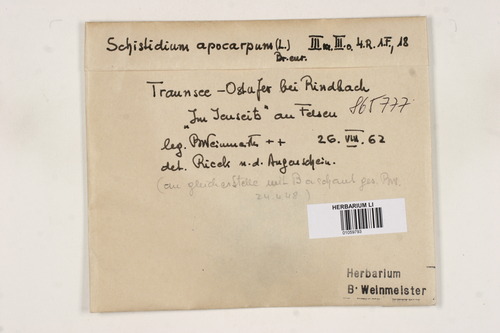 Schistidium apocarpum (L.) III m. III o. 4. R. 1. F., 18
Br. eur.
Traunsee - Ostufer bei Rindbach
865777
"Im Jenseits" an Felsen
leg. B Weinmeister ++ 26. VIII. 62
det. Ricek n. d. Augenschein.
(an gleicher Stelle mit
24.4.48.)
HERBARIUM LI
Herbarium
B. Weinmeister